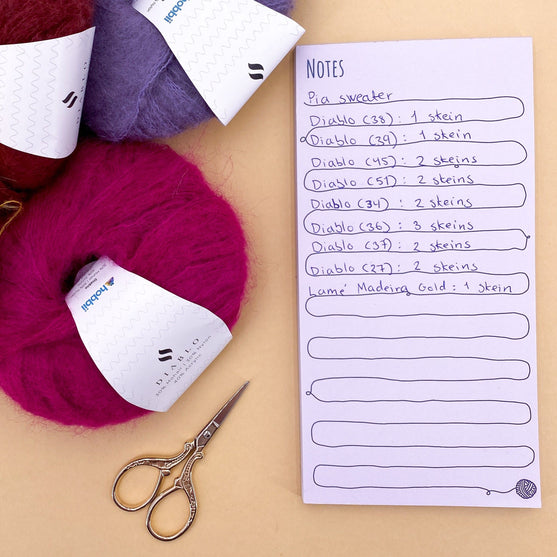 NOTES
Pia sweater
Diablo (38) : 1 skein
Diablo (39) : 1 skein
Diablo (45) : 2 skeins
Diablo (51) : 2 skeins
Diablo (34) : 2 skeins
Diablo (36) : 3 skeins
Diablo (37) : 2 skeins
Diablo (27) : 2 skeins
Lamé Madeira Gold : 1 skein
hobbii
DIABLO
hobbii
DIABLO
30% Mohair | 30% Nylon
40% Acrylic